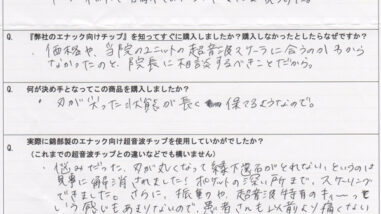 Q. 『弊社のエナック向けチップ』を知ってすぐに購入しましたか？購入しなかったとしたらなぜですか？
・価格や、当院のユニットの超音波スケーラに合うのか分から
なかったのと、院長に相談するべきことだから。
Q. 何が決め手となってこの商品を購入しましたか？
・刃が尖った状態が長く保てるようなので。
Q. 実際に錦部製のエナック向け超音波チップを使用していかがでしたか？
（これまでの超音波チップとの違いなどでも構いません）
・悩みだった、刃が丸くなって縁下歯石がとれない、というのは
見事に解消されました！ポケットの深い所まで、スケーリング
できました。さらに、振動や、超音波特有のキィーっと
いう感じもあまりないので、患者さんも以前より痛くない